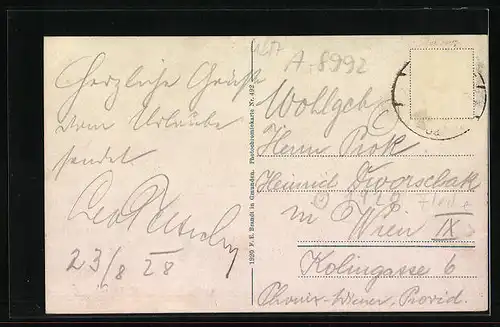 Herzliche Grüße
vom Urlaube
sendet
23/8 28
1920 P. E. Brandt in Gmunden. Photochromiekarte Nr. 492
A-8992
Wohlgeb.
Herrn Prok.
Heinrich Dworschak
in Wien IX
Kolingasse 6
Phönix-Wiener, Provid.